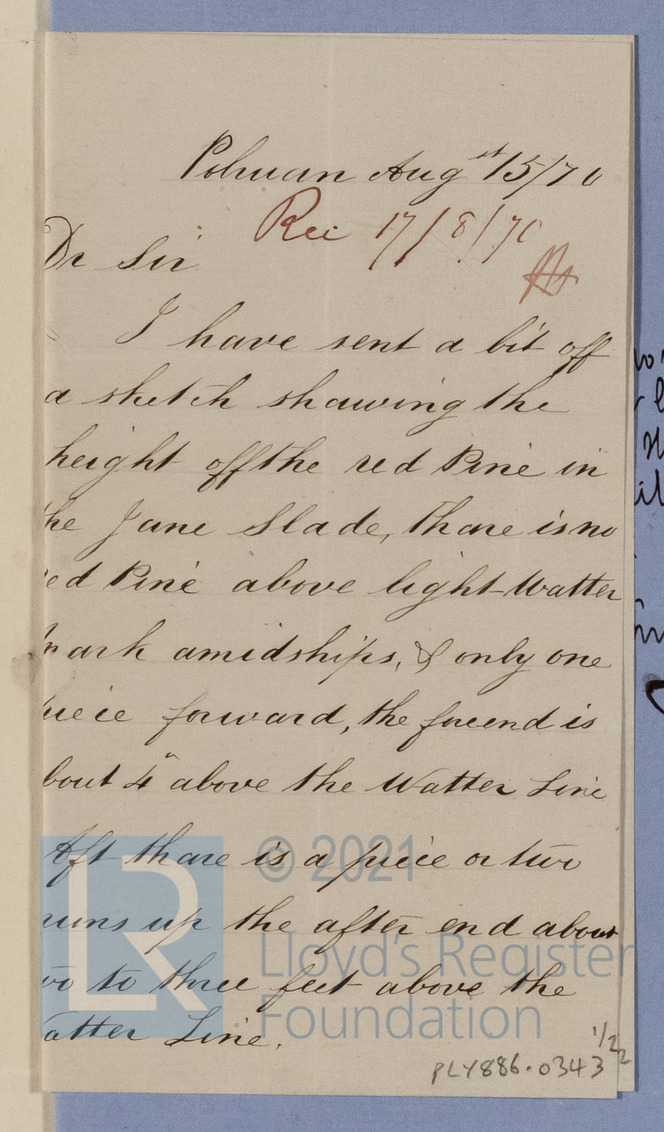 Polruan Augst 15/70
Rec 17/8/70
Dr Sir
I have sent a bit off
a sketch shawing the
height off the red Pine in
the Jane Slade, thare is no
red Pine above light Watter
mark amidships, & only one
piece forward, the forend is
about 4" above the Watter Line
Aft thare is a piece or two
runs up the after end about
two to three feet above the
Watter Line.
LR
© 2021
Lloyd's Register
Foundation
1/2
PLY886.0343